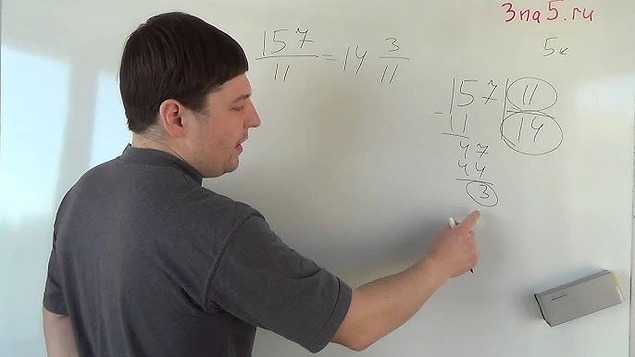 3na5.ru
5к
157/11 = 14 3/11
157 | 11
- 11 | 14
47
44
3